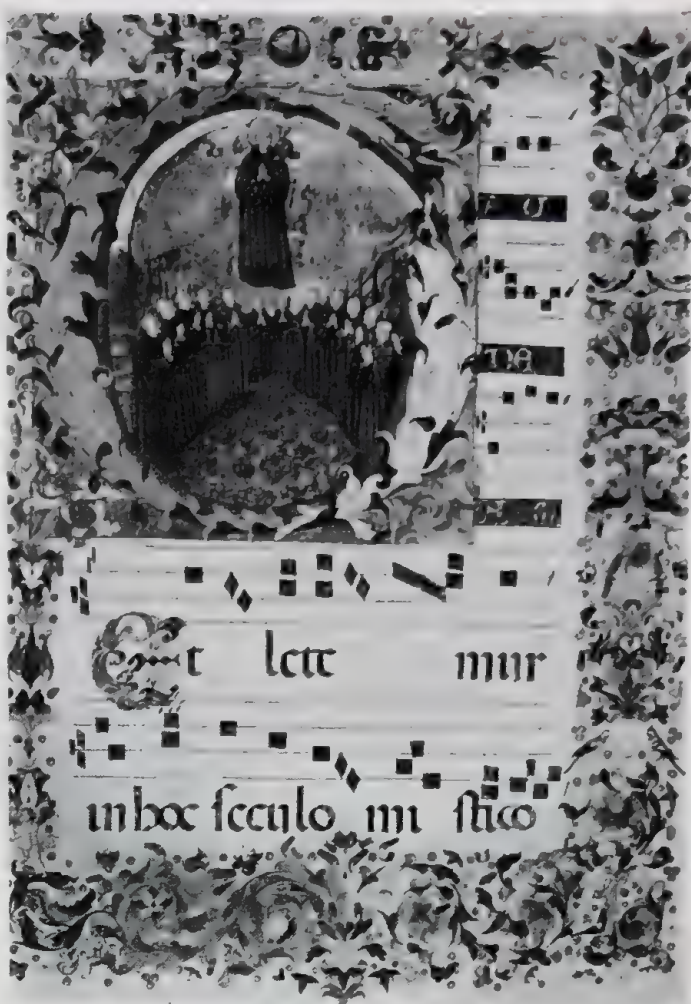 NA
Et lete mur
in hoc seculo mi stico